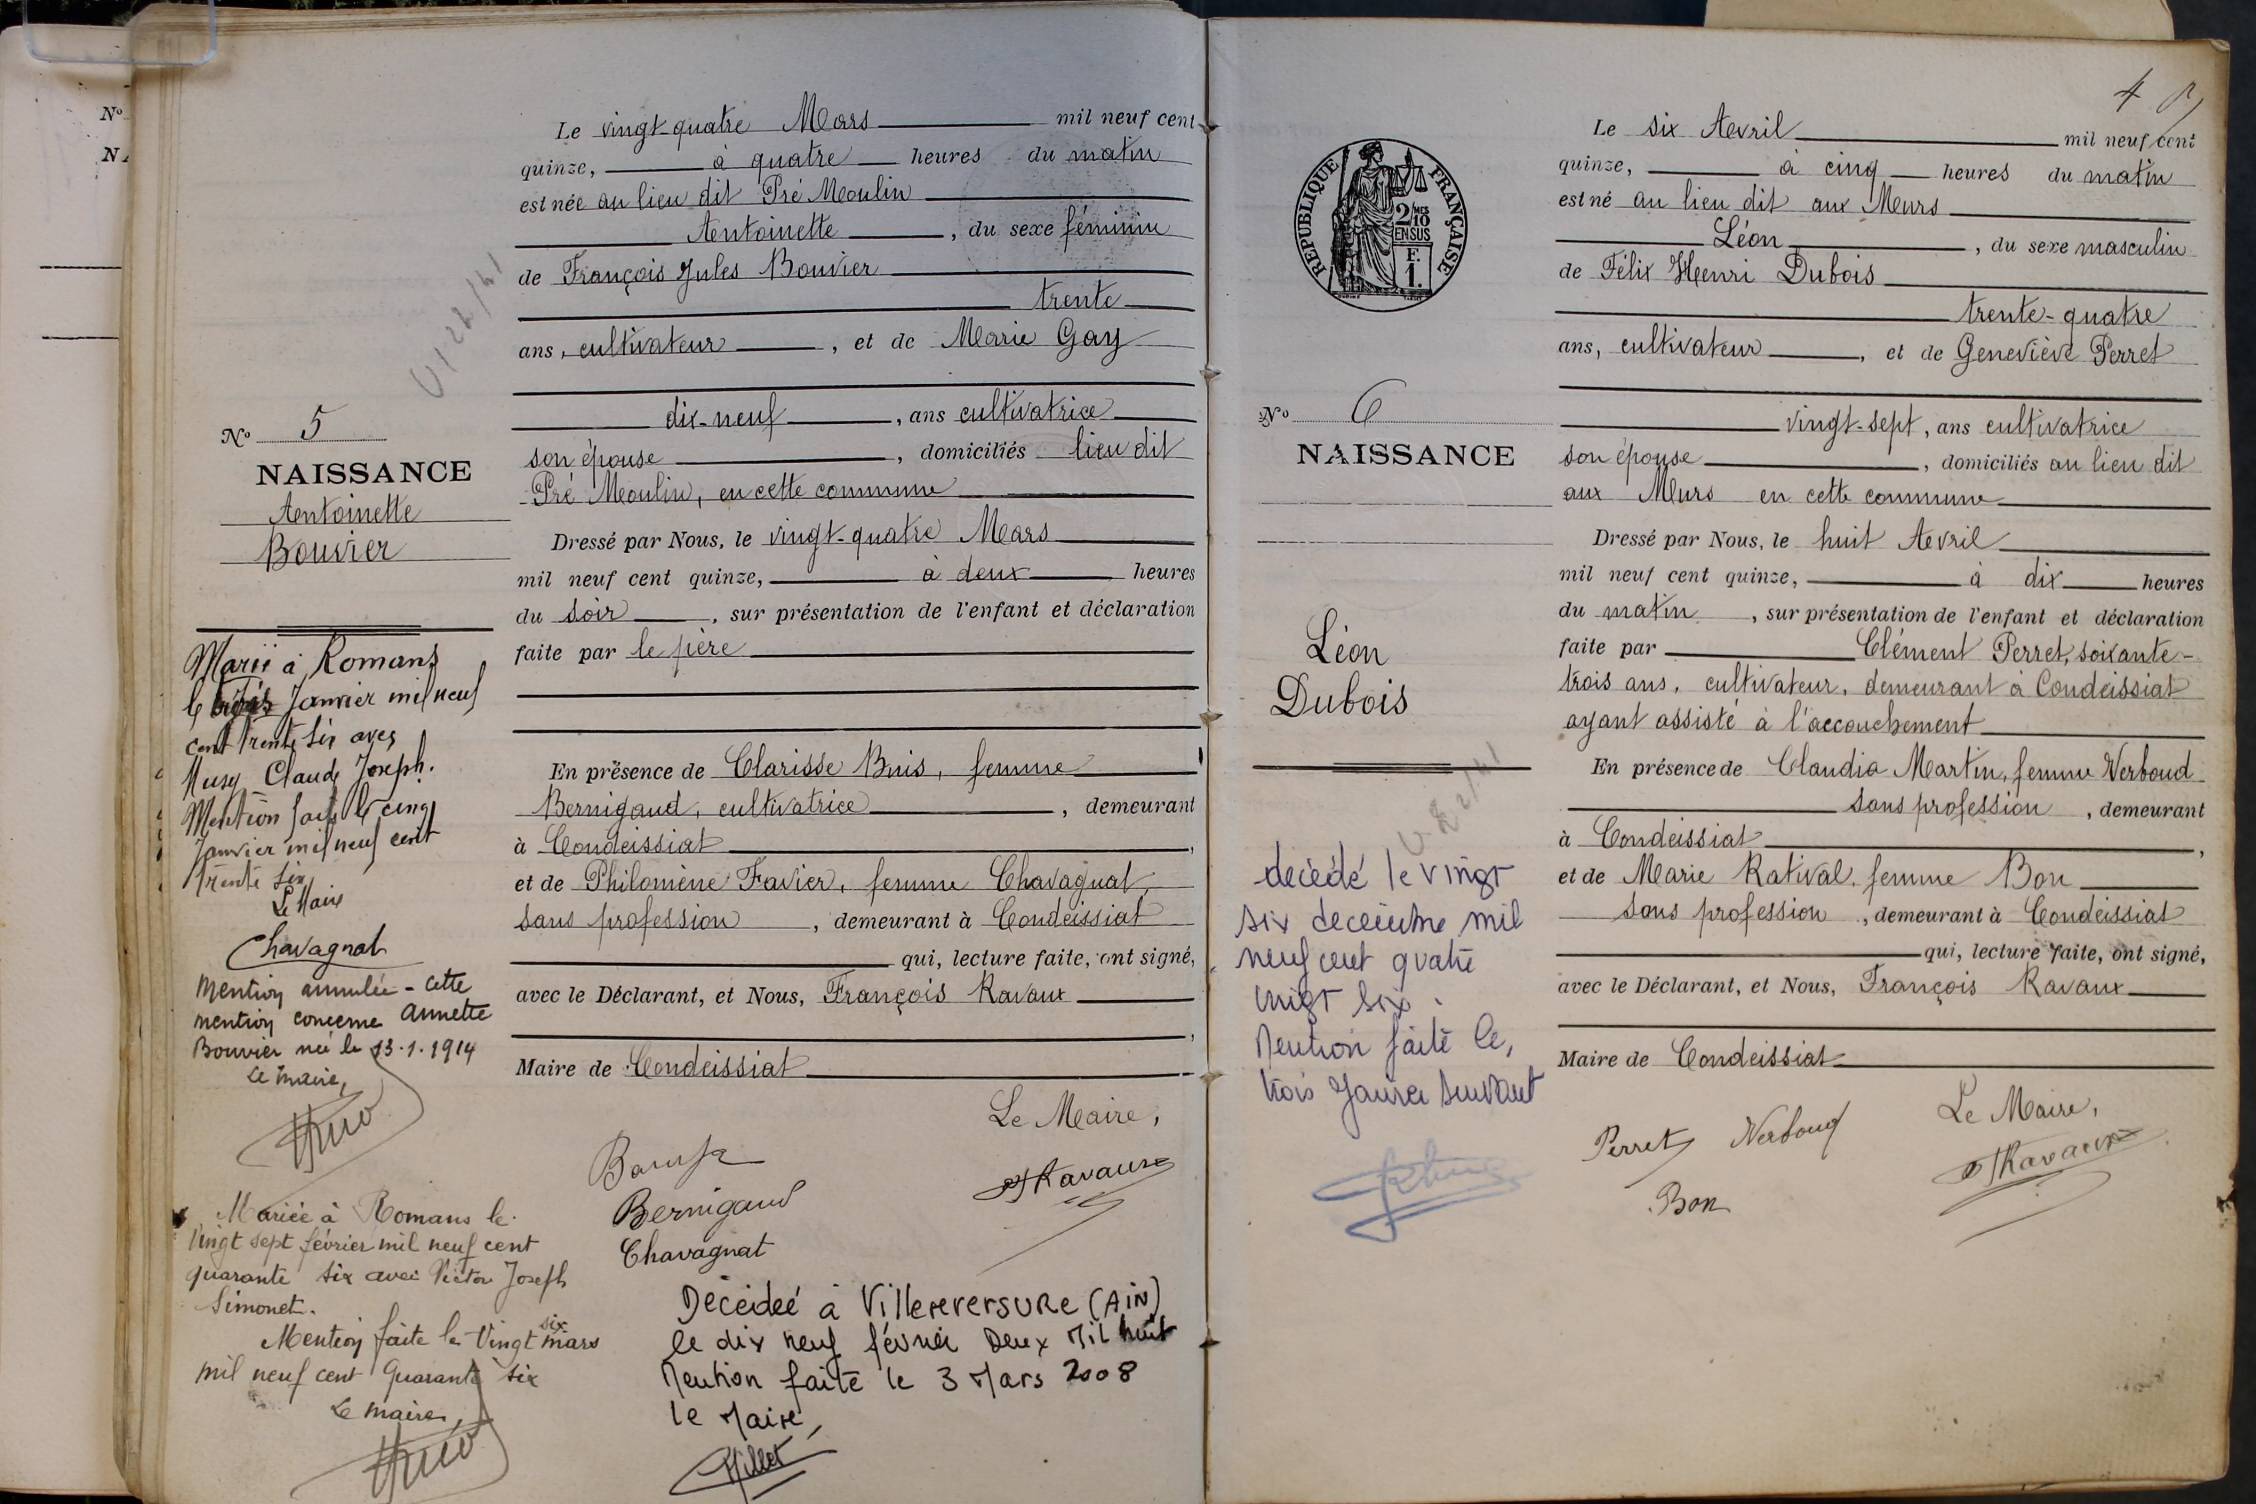 Nº
NA
Le vingt-quatre Mars mil neuf cent
quinze, à quatre heures du matin
est née au lieu dit Pré Moulin
Antoinette, du sexe féminin
de François Jules Bouvier
trente
ans, cultivateur, et de Marie Gay
dix-neuf, ans cultivatrice
son épouse, domiciliés lieu dit
Pré Moulin, en cette commune
Dressé par Nous, le vingt-quatre Mars
mil neuf cent quinze, à deux heures
du soir, sur présentation de l'enfant et déclaration
faite par le père
En présence de Clarisse Buis, femme
Bernigaud, cultivatrice, demeurant
à Condeissiat,
et de Philomène Favier, femme Chavagnat,
sans profession, demeurant à Condeissiat
qui, lecture faite, ont signé,
avec le Déclarant, et Nous, François Ravaux
,
Maire de Condeissiat
Le Maire,
Bernigaud
Chavagnat
Ravaux
Décédeé à Villereversure (AiN)
le dix neuf février Deux Mil huit
Mention faite le 3 Mars 2008
le Maire,
Millet
Nº 5
NAISSANCE
Antoinette
Bouvier
Marié à Romans
le trois Janvier mil neuf
cent trente six avec
Musy Claude Joseph.
Mention faite le cinq
Janvier mil neuf cent
trente six
Le Maire
Chavagnat
Mention annulée - cette
mention concerne Annette
Bouvier née le 13.1.1914
Le maire,
Mariée à Romans le
vingt sept février mil neuf cent
quarante six avec Victor Joseph
Simonet.
Mention faite le vingt six mars
mil neuf cent quarante six
Le maire,
4
RÉPUBLIQUE FRANÇAISE
2/10 MES
EN SUS
F.
1.
Le six Avril mil neuf cent
quinze, à cinq heures du matin
est né au lieu dit aux Murs
Léon, du sexe masculin
de Félix Henri Dubois
trente-quatre
ans, cultivateur, et de Geneviève Perret
vingt-sept, ans cultivatrice
son épouse, domiciliés au lieu dit
aux Murs en cette commune
Dressé par Nous, le huit Avril
mil neuf cent quinze, à dix heures
du matin, sur présentation de l'enfant et déclaration
faite par Clément Perret, soixante-
trois ans, cultivateur, demeurant à Condeissiat
ayant assisté à l'accouchement
En présence de Claudia Martin, femme Verboud
sans profession, demeurant
à Condeissiat,
et de Marie Ratival, femme Bon
sans profession, demeurant à Condeissiat
qui, lecture faite, ont signé,
avec le Déclarant, et Nous, François Ravaux
Maire de Condeissiat
Le Maire,
Perret Verboud
Ravaux
Bon
Nº 6
NAISSANCE
Léon
Dubois
décédé le vingt
six decembre mil
neuf cent quatre
vingt six.
Mention faite le,
trois Janvier suivant